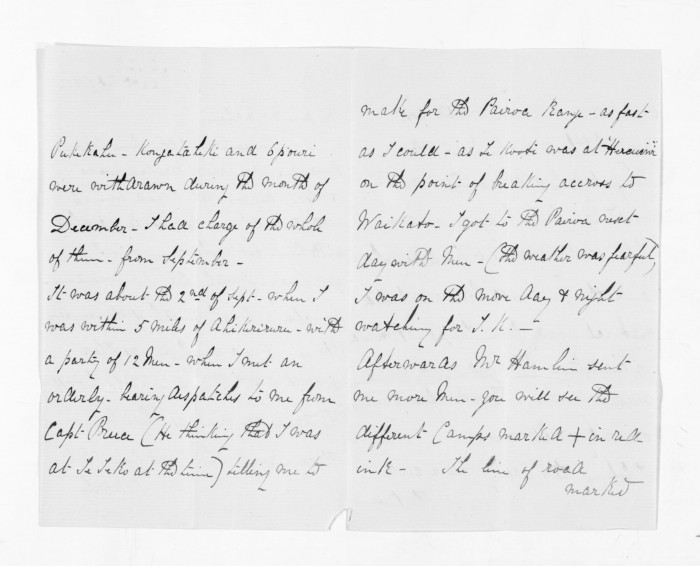 Pukekahu - Kongatahiki and Epouri
were withdrawn during the month of
December - I had charge of the whole
of them - from September -
It was about the 2nd of Sept - when I
was within 5 miles of Ahikereru - with
a party of 12 Men - when I met an
orderly - bearing despatches to me from
Capt Preece (He thinking that I was
at Te Teko at the time) telling me to
make for the Pairoa Range - as fast
as I could - as Te Kooti was at
on the point of breaking accross to
Waikato - I got to the Pairoa next
day with Men - (the weather was fearful)
I was on the move day & night
watching for T. K. -
Afterwards Mr Hamlin sent
me more Men - you will see the
different Camps marked + in red
ink - The line of road
marked